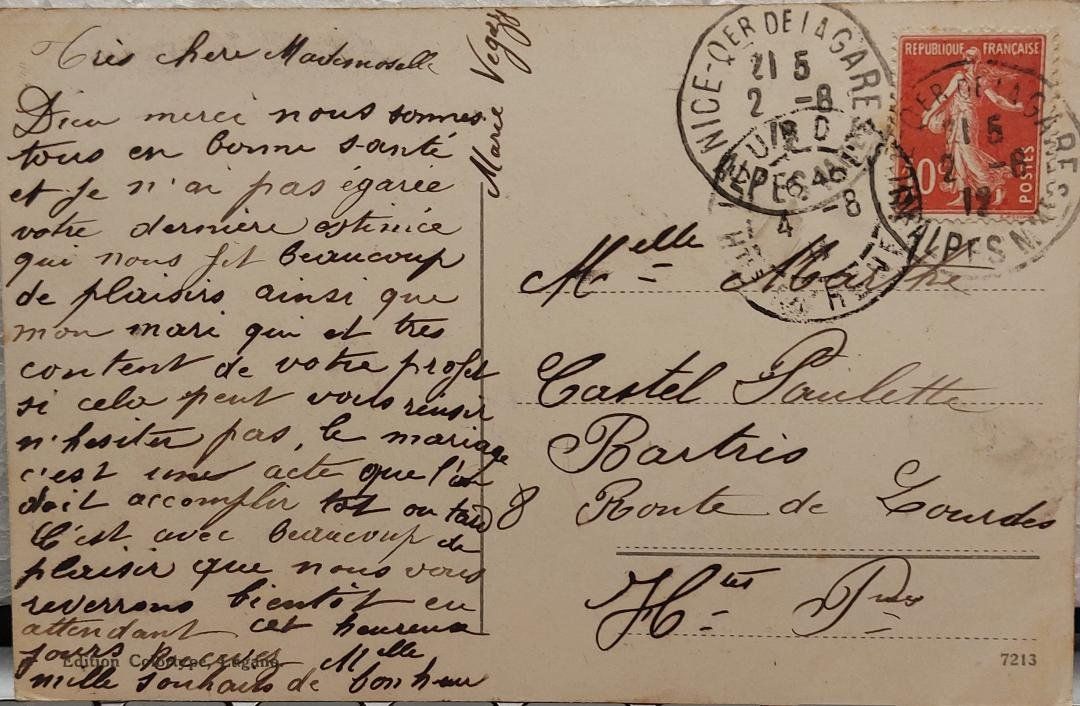 Très chere Mademoiselle
Dieu merci nous sommes
tous en bonne santé
et je n'ai pas égarée
votre derniere
qui nous fit beaucoup
de plaisirs ainsi que
mon mari qui et tres
content de votre projet
si cela peut vous réusir
n'hesiter pas, le mariage
c'est une acte que l'on
doit accomplir tot ou tard
C'est avec beaucoup de
plaisir que nous vous
reverrons bientôt en
attendant cet heureux
jours Melle
mille souhais de bonheur
Marie
Edition Colortype, Lugano.
NICE-QER DE LA GARE
21 5
2 -8
ALPES MMES
6 45
4 -8
RÉPUBLIQUE FRANÇAISE
POSTES
QER DE LA GARE
21 5
2 -8
12
ALPES MMES
Melle Marthe
Castel Paulette
Bartris
8 Route de Lourdes
Htes
7213